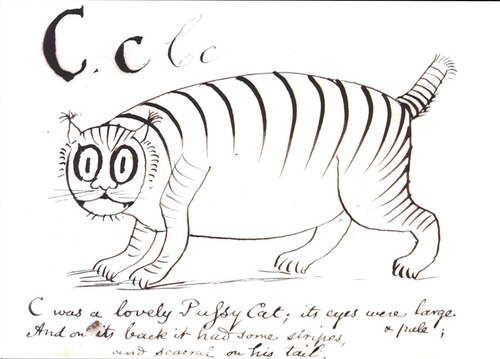 C. c C c
C was a lovely Pussy Cat; its eyes were large
And on its back it had some stripes, & pale;
and several on his tail.